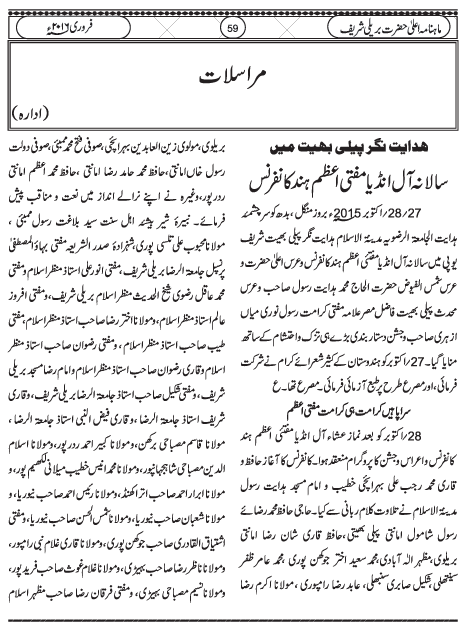 ماہنامہ اعلیٰ حضرت بریلی شریف
59
فروری ۲۰۱۶ء
مراسلات
(ادارہ)
ھدایت نگر پیلی بھیت میں
سالانہ آل انڈیا مفتی اعظم ہند کانفرنس
27/28/اکتوبر 2015ء بروز منگل، بدھ کو سرچشمہ
ہدایت الجامعۃ الرضویہ مدینۃ الاسلام ہدایت نگر پیلی بھیت شریف
یوپی میں سالانہ آل انڈیا مفتی اعظم ہند کانفرنس و عرس اعلیٰ حضرت و
عرس شمس الفیوض حضرت الحاج محمد ہدایت رسول صاحب و عرس
محدث پیلی بھیت فاضل مصر علامہ مفتی کرامت رسول نوری میاں
ازہری صاحب و جشن دستار بندی بڑے ہی تزک و احتشام کے ساتھ
منایا گیا۔ 27/اکتوبر کو ہندوستان کے کثیر شعرائے کرام نے شرکت
فرمائی، اور مصرع طرح پر طبع آزمائی فرمائی۔ مصرع تھا۔ ع
سراپا ہیں کرامت ہی کرامت مفتی اعظم
28/اکتوبر کو بعد نماز عشاء آل انڈیا مفتی اعظم ہند
کانفرنس و اعراس و جشن کا پروگرام منعقد ہوا۔ کانفرنس کا آغاز حافظ و
قاری محمد رجب علی بہرائچی خطیب و امام مسجد ہدایت رسول
مدینۃ الاسلام نے تلاوت کلام ربانی سے کیا۔ حاجی حافظ محمد رضائے
رسول شامول امانتی پیلی بھیتی، حافظ قاری شان رضا امانتی
بریلوی، مظہر الہ آبادی، محمد سعید اختر جوکھن پوری، محمد عامر ظفر
سیتھلی، شکیل صابری سنبھلی، عابد رضا رامپوری، مولانا اکرم رضا
بریلوی، مولوی زین العابدین بہرائچی، صوفی فتح محمد ممبئی، صوفی دولت
رسول خاں امانتی، حافظ محمد حامد رضا امانتی، حافظ محمد اعظم امانتی
ردرپور، وغیرہ نے اپنے نرالے انداز میں نعت و مناقب پیش
فرمائے۔ نبیرۂ شیر بیشہ اہل سنت سید بلاغت رسول ممبئی،
مولانا محبوب علی تلسی پوری، شہزادۂ صدر الشریعہ مفتی بہاؤ المصطفیٰ
پرنسپل جامعۃ الرضا بریلی شریف، مفتی انور علی استاذ منظر اسلام و مفتی
محمد عاقل رضوی شیخ الحدیث منظر اسلام بریلی شریف، مفتی افروز
عالم استاذ منظر اسلام، و مولانا اختر رضا صاحب استاذ منظر اسلام، مفتی
طیب صاحب استاذ منظر اسلام، و مفتی رضوان صاحب استاذ منظر
اسلام، و مفتی رضوان صاحب استاذ منظر اسلام و امام رضا مسجد بریلی
شریف، و مفتی شکیل صاحب استاذ جامعۃ الرضا بریلی شریف، و قاری
شریف استاذ جامعۃ الرضا، و قاری فیض النبی استاذ جامعۃ الرضا،
مولانا قاسم مصباحی برکھن، و مولانا کبیر احمد ردرپور، و مولانا
الدین مصباحی شاہجہانپور، و مولانا محمد انیس خطیب میلانی لکھیم پور، و
مولانا ابرار احمد صاحب اتراکھنڈ، و مولانا رئیس احمد صاحب نیوریا، و
مولانا شعبان صاحب نیوریا، و مولانا شمس الحسن صاحب نیوریا، و مفتی
اشتیاق القادری صاحب جوکھن پوری، و مولانا قاری غلام نبی رامپور،
و مولانا ناظر رضا صاحب بہیڑی، و مولانا غلام غوث صاحب فریدپور،
و مولانا نسیم مصباحی بہیڑی، و مفتی فرقان رضا صاحب مظہر اسلام